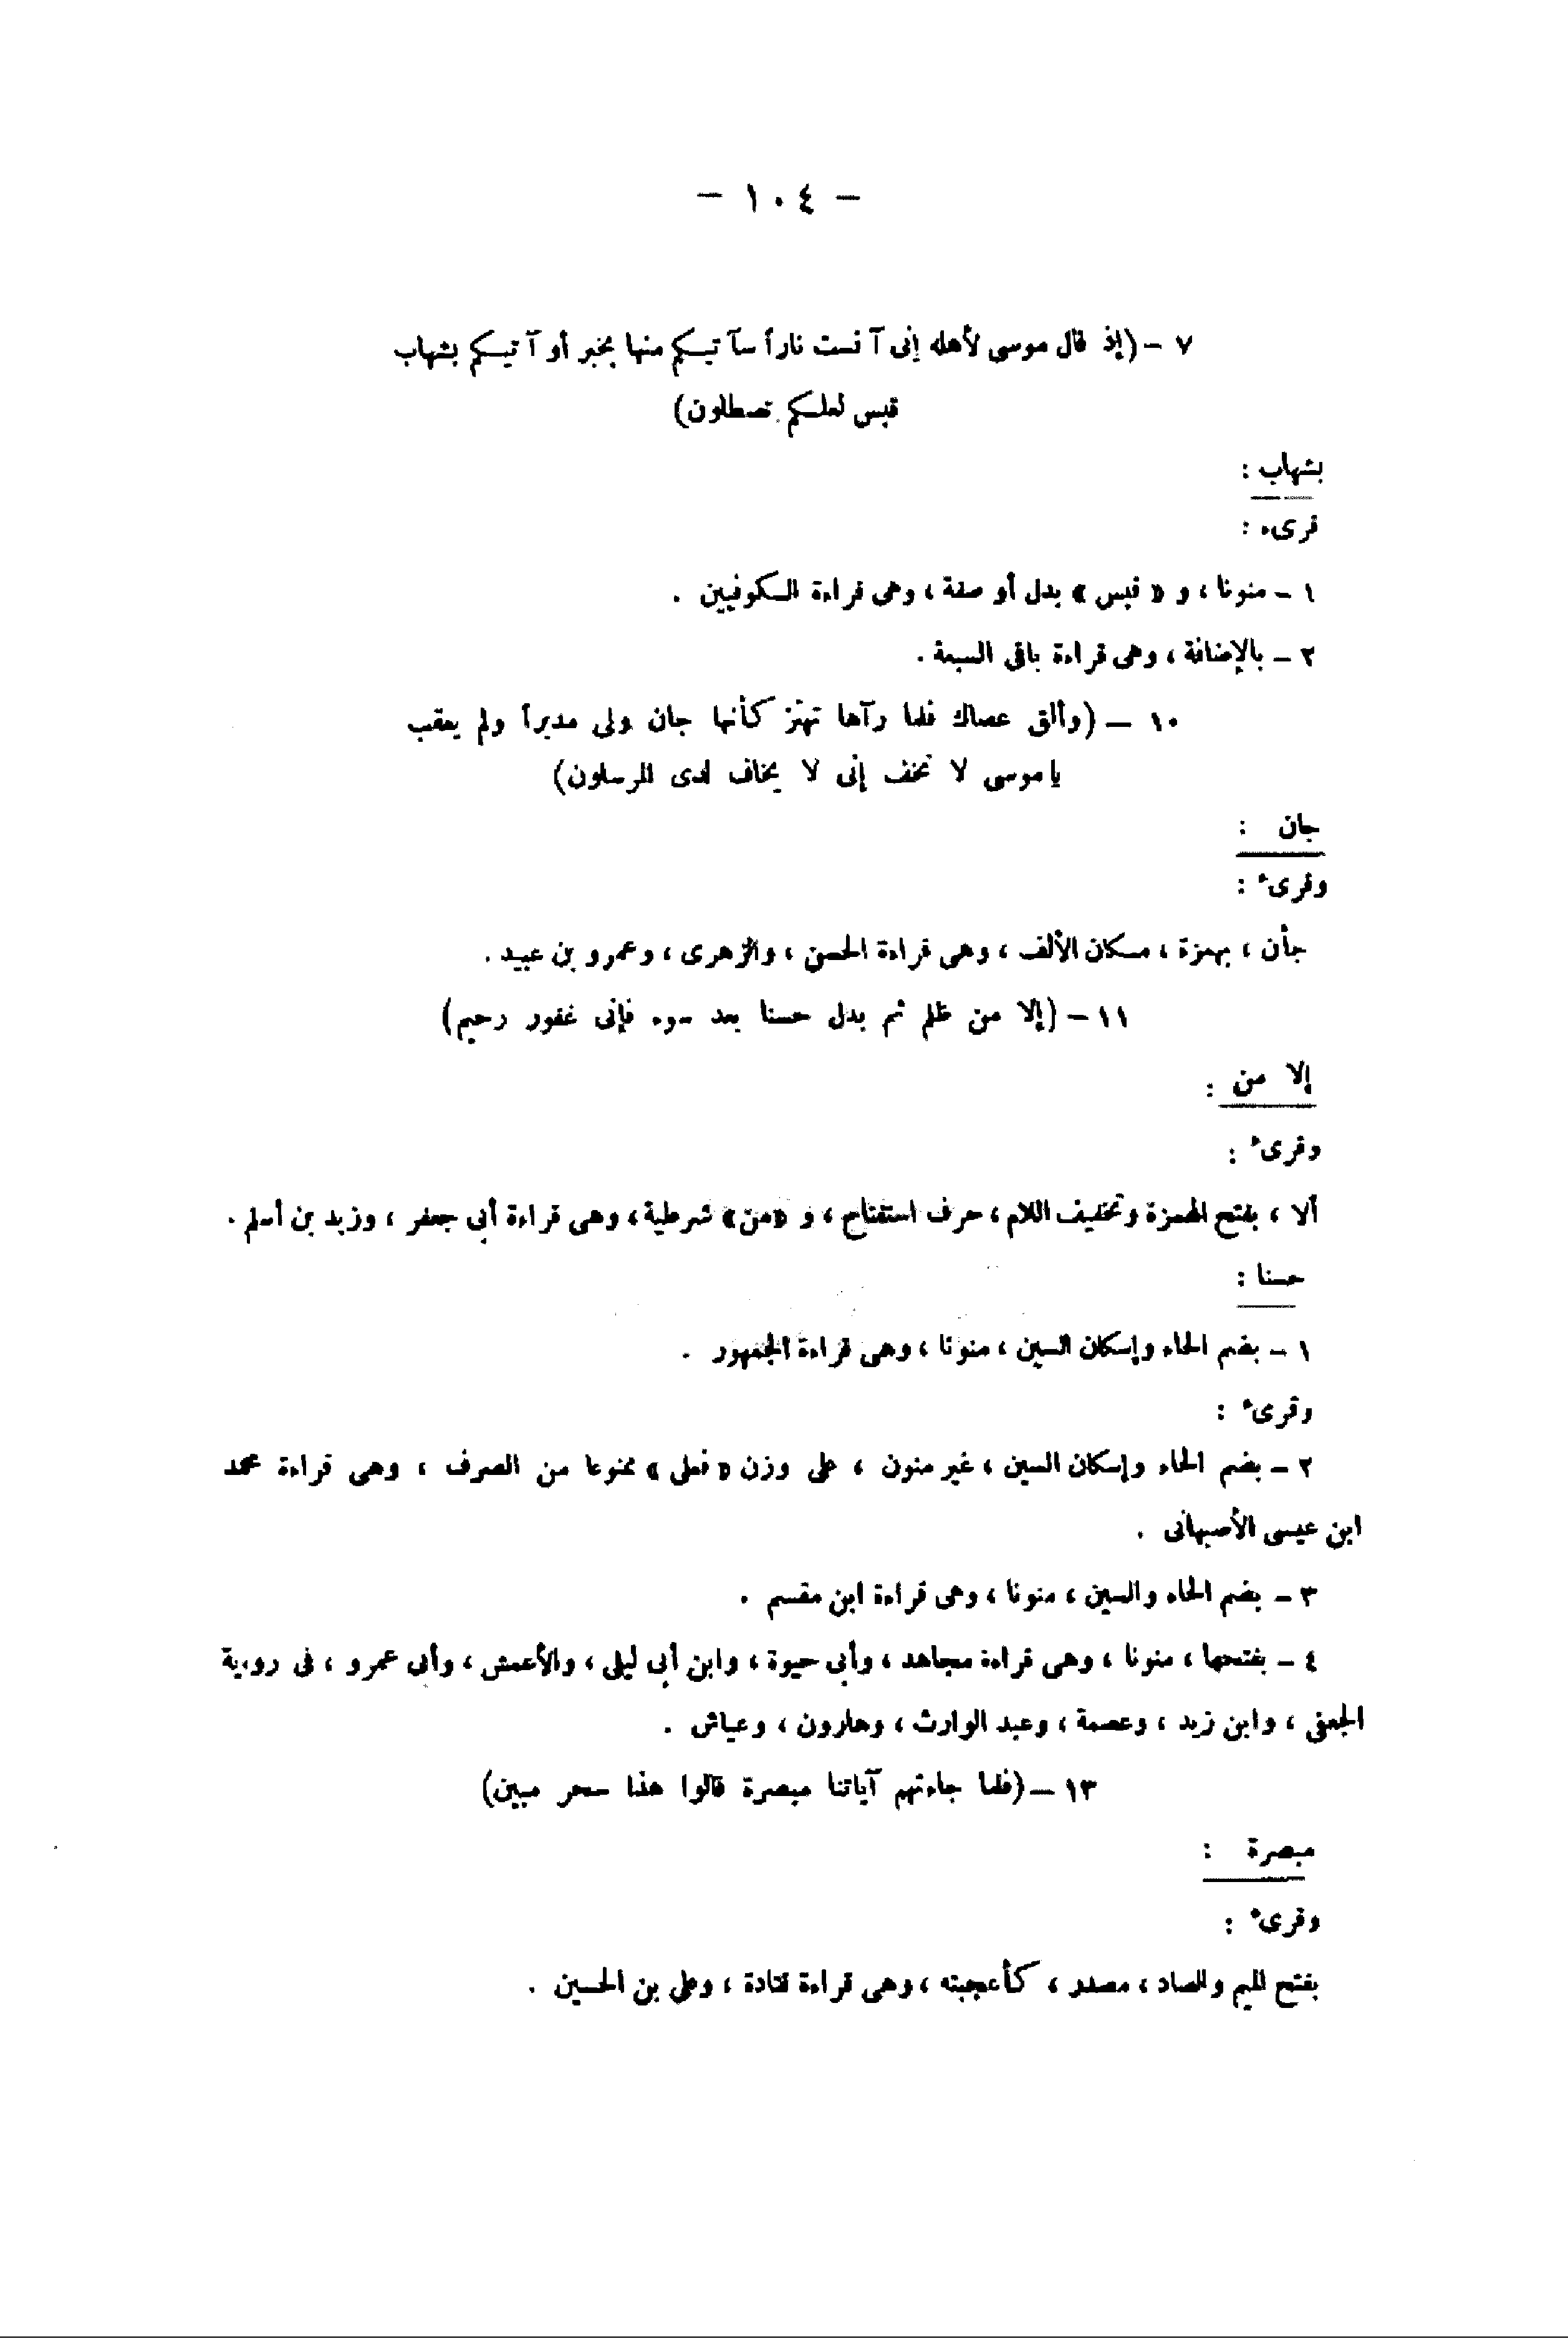 - ١٠٤ -
٧ - (إذ قال موسى لأهله إنى آنست ناراً سآتيكم منها بخبر أو آتيكم بشهاب
قبس لعلكم تصطلون)
بشهاب :
قرىء :
١ - منونا ، و « قبس » بدل أو صفة ، وهى قراءة الكوفيين .
٢ - بالإضافة ، وهى قراءة باقى السبعة .
١٠ - (وألق عصاك فلما رآها تهتز كأنها جان ولى مدبراً ولم يعقب
ياموسى لا تخف إنى لا يخاف لدى المرسلون)
جان :
وقرىء :
جأن ، بهمزة ، مكان الألف ، وهى قراءة الحسن ، والزهرى ، وعمرو بن عبيد .
١١ - (إلا من ظلم ثم بدل حسنا بعد سوء فإنى غفور رحيم)
إلا من :
وقرىء :
ألا ، بفتح الهمزة وتخفيف اللام ، حرف استفتاح ، و «من» شرطية ، وهى قراءة أبى جعفر ، وزيد بن أسلم .
حسنا :
١ - بضم الحاء وإسكان السين ، منونا ، وهى قراءة الجمهور .
وقرىء :
٢ - بضم الحاء وإسكان السين ، غير منون ، على وزن « فعلى » ممنوعا من الصرف ، وهى قراءة محمد
ابن عيسى الأصبهانى .
٣ - بضم الحاء والسين ، منونا ، وهى قراءة ابن مقسم .
٤ - بفتحها ، منونا ، وهى قراءة مجاهد ، وأبى حيوة ، وابن أبى ليلى ، والأعمش ، وأبى عمرو ، فى رواية
الجعفى ، وابن زيد ، وعصمة ، وعبد الوارث ، وهارون ، وعياش .
١٣ - (فلما جاءتهم آياتنا مبصرة قالوا هذا سحر مبين)
مبصرة :
وقرىء :
بفتح الميم والصاد ، مصدر ، كأعجبته ، وهى قراءة قتادة ، وعلى بن الحسين .